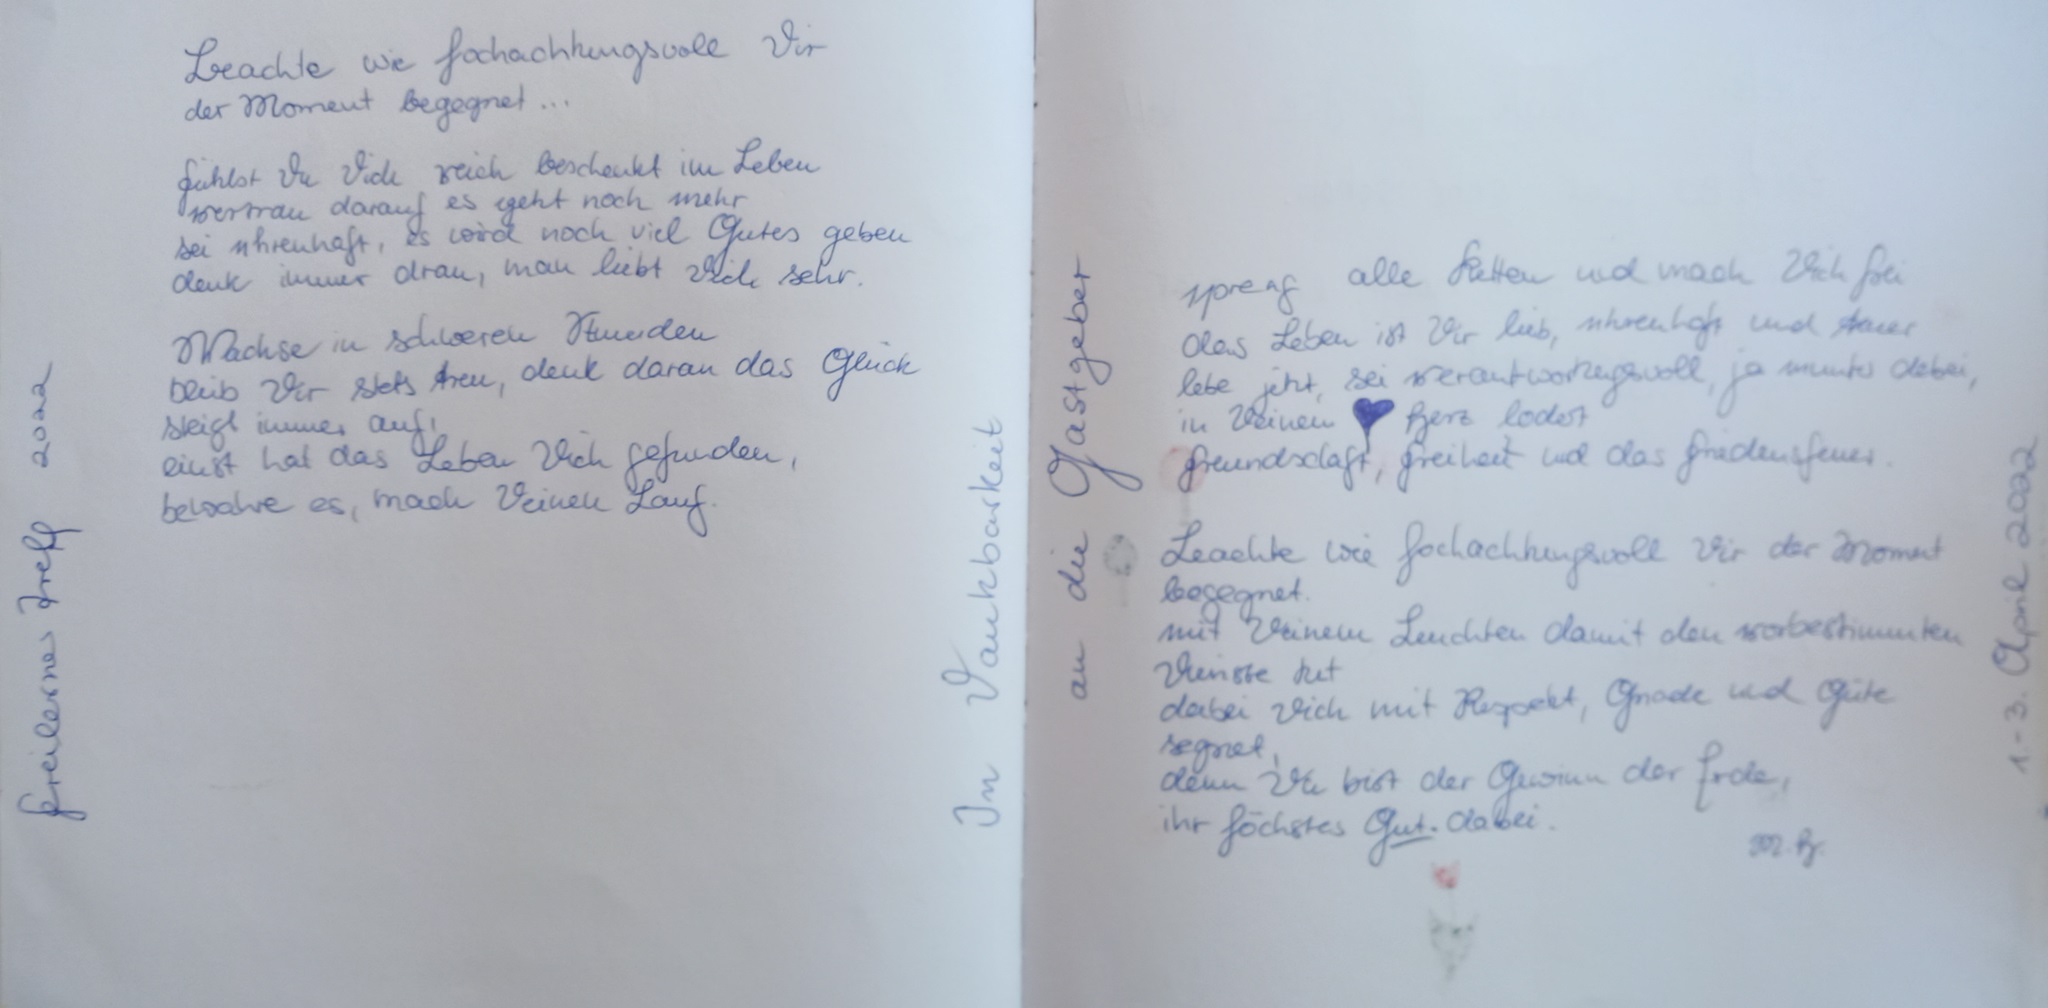 Beachte wie hochachtungsvoll Dir
der Moment begegnet...
fühlst Du Dich reich beschenkt im Leben
vertrau darauf es geht noch mehr
sei ehrenhaft, es wird noch viel Gutes geben
denk immer dran, man liebt Dich sehr.
Wachse in schweren Stunden
bleib Dir stets treu, denk daran das Glück
steigt immer auf,
einst hat das Leben Dich gefunden,
bewahre es, mach Deinen Lauf.
Freilerner Treff 2022
In Dankbarkeit
an die Gastgeber
spreng alle Ketten und mach Dich frei
das Leben ist Dir lieb, ehrenhaft und teuer
lebe jetzt, sei verantwortungsvoll, ja munter dabei,
in Deinem Herz lodert
Freundschaft, Freiheit und das Friedensfeuer.
Beachte wie hochachtungsvoll Dir der Moment
begegnet.
mit Deinem Leuchten damit den vorbestimmten
Dienste tut
dabei Dich mit Respekt, Gnade und Güte
segnet,
denn Du bist der Gewinn der Erde,
ihr höchstes Gut. dabei.
M. H.
1.-3. April 2022